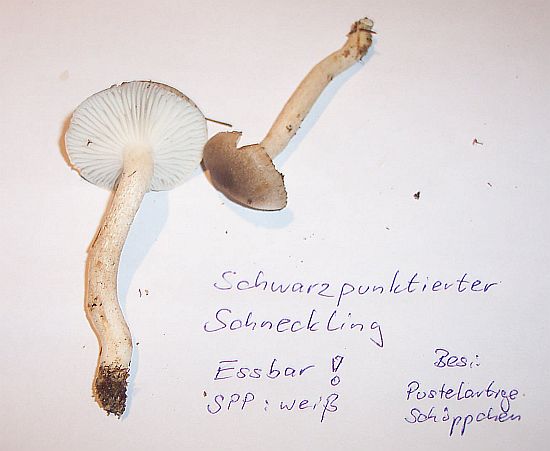 Schwarzpunktierter
Schneckling
Essbar!
SPP: weiß
Bes.:
Pustelartige
Schüppchen